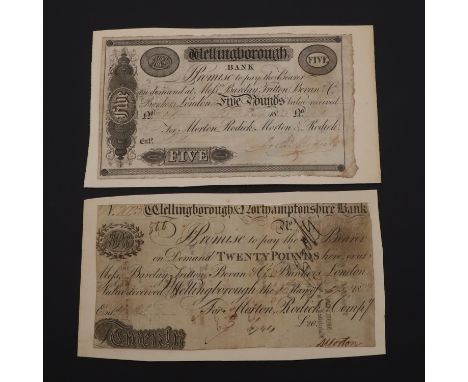 Wellingborough
BANK
FIVE
Promise to pay the Bearer
on demand at Messrs Barclay, Tritton, Bevan & Co
Bankers, London Five Pounds Value received
No 18 No
Five
For Morton, Rodick, Morton & Rodick
Entd
FIVE
Wellingborough & Northamptonshire Bank
No
Promise to pay the Bearer
on Demand TWENTY POUNDS here, or at
Messrs Barclay, Tritton, Bevan & Co Bankers London
Value received, Wellingborough the
For Morton, Rodick & Compy
Entd
Twenty
Morton